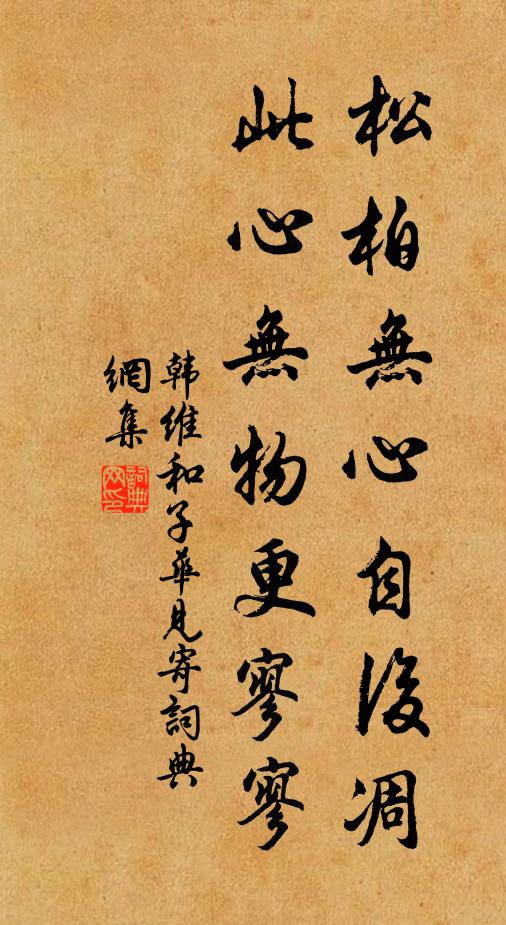 松柏無心自後凋
此心無物更寥寥
韩維和子華見寄詞典
網集
詞典
网印